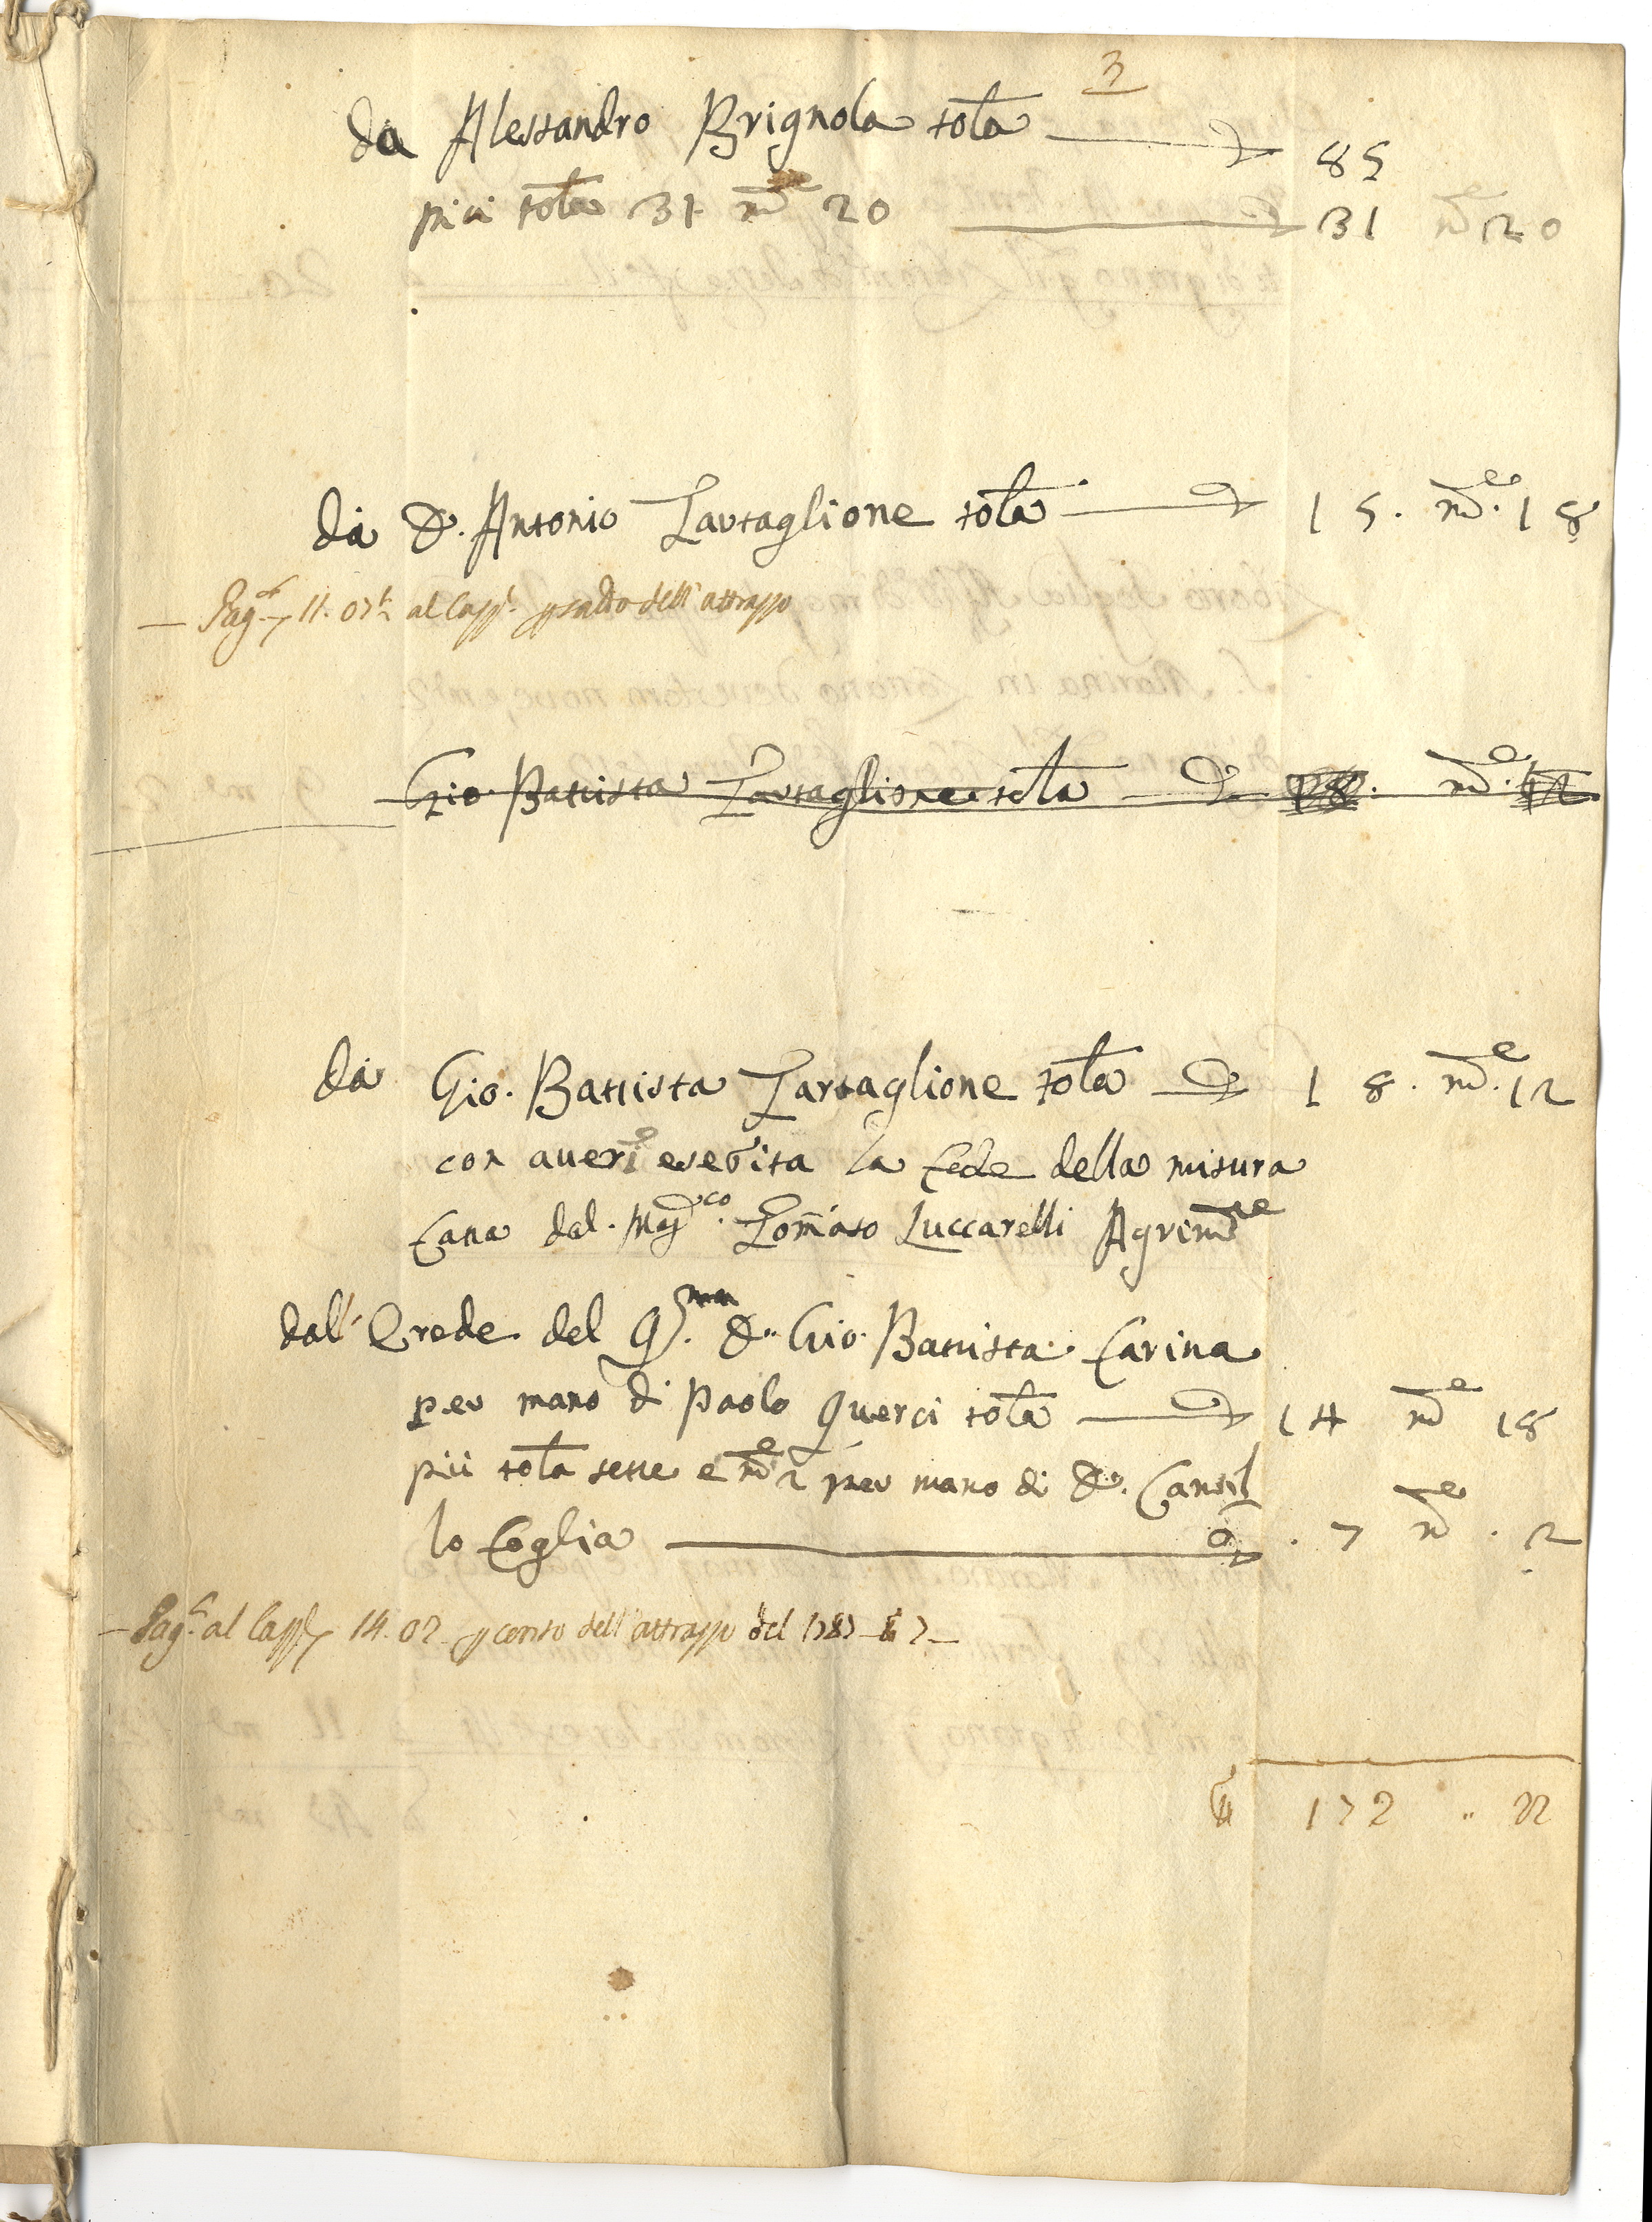 3
da Alessandro Brignola tola 85
più tola 31 md.e 20 31 md.e 20
da D. Antonio Tartaglione tola 15. md.e 18
Pag. 11. 07 al Capp. saldo dell'attrasso
Gio. Battista Tartaglione tola md.e
da Gio. Battista Tartaglione tola 18. md.e 12
con aver esebita la fede della misura
fatta dal Mag.co Tomaso Luccarelli Agrim.re
dall'Erede del q.m D. Gio. Battista Farina
per mano di Paolo Querci tola 14 md.e 18
più tola sette e md.e 2 per mano di D.
lo Foglia 7 md.e 2
Pag. al Capp. 14. 07 conto dell'attrasso del
172 " 22